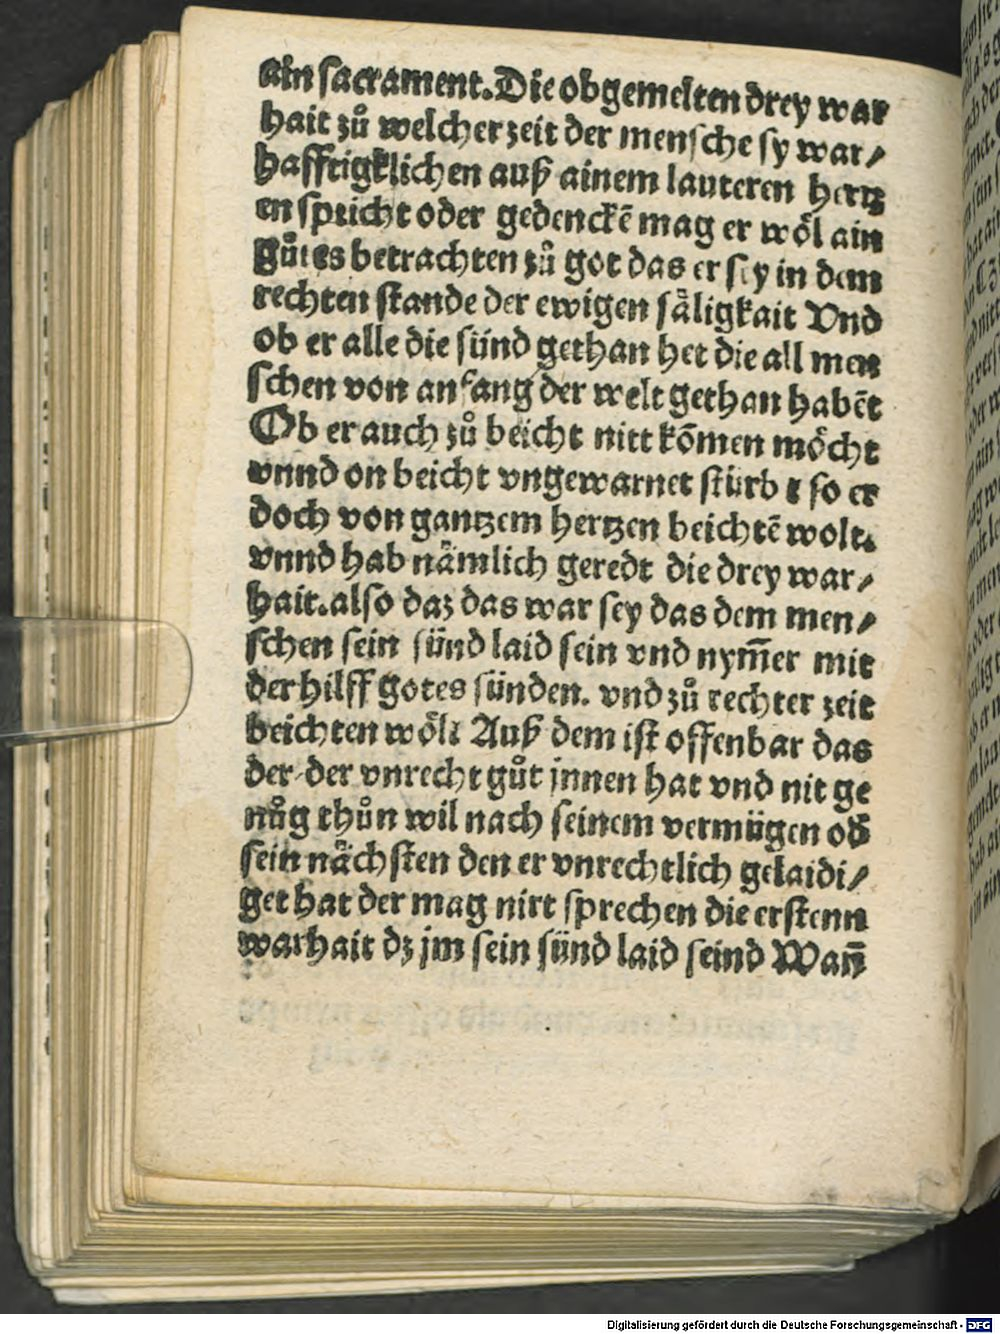 ain sacrament. Die obgemelten drey war
hait zů welcher zeit der mensche sy war/
hafftigklichen auß ainem lauteren hertz
en spricht oder gedenckē mag er wöl ain
gůtes betrachten zů got das er sey in dem
rechten stande der ewigen säligkait Vnd
ob er alle die sünd gethan het die all men
schen von anfang der welt gethan habēt
Ob er auch zů beicht nitt kōmen möcht
vnnd on beicht vngewarnet stürb t so er
doch von gantzem hertzen beichtē wolt.
vnnd hab nämlich geredt die drey war/
hait. also daz das war sey das dem men/
schen sein sünd laid sein vnd nym̄er mit
der hilff gotes sünden. vnd zů rechter zeit
beichten wöll Auß dem ist offenbar das
der der vnrecht gůt jnnen hat vnd nit ge
nůg thůn wil nach seinem vermügen od
sein nächsten den er vnrechtlich gelaidi/
get hat der mag nitt sprechen die erstenn
warhait dz jm sein sünd laid seind Wan̄
Digitalisierung gefördert durch die Deutsche Forschungsgemeinschaft - DFG